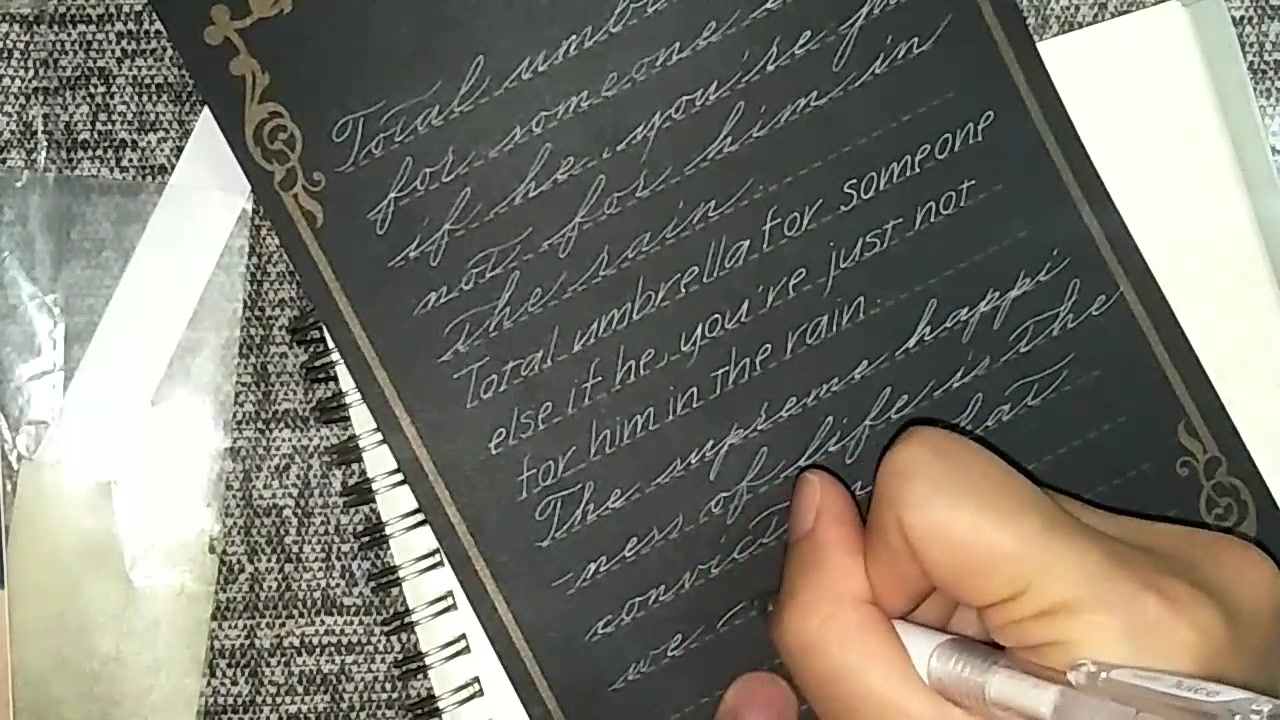 Total umbr
for someone
if he, you're ju
not for him in
the rain.
Total umbrella for someone
else if he, you're just not
for him in the rain.
The supreme happi
-ness of life is the
convict hat
we
Juice